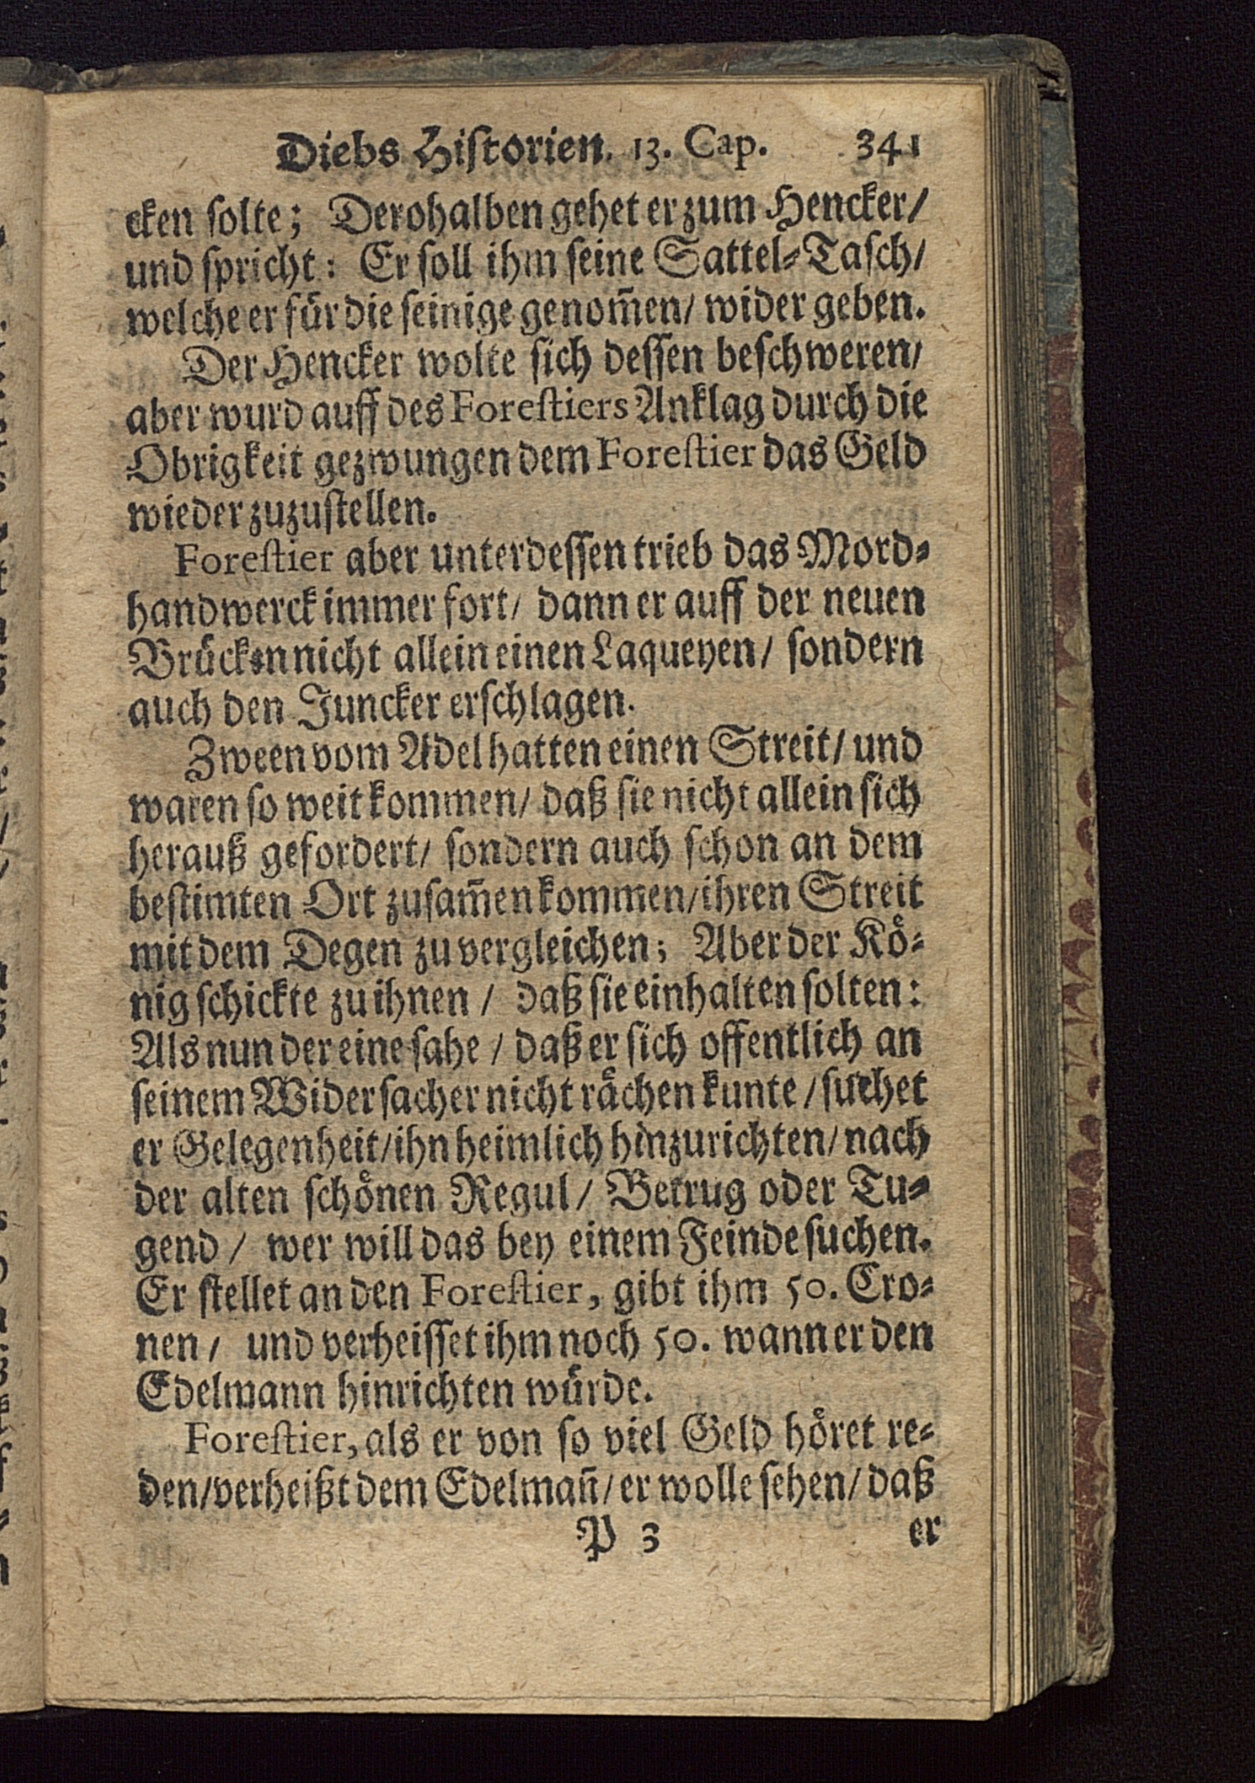 Diebs Historien. 13. Cap. 341
cken solte; Derohalben gehet er zum Hencker/
und spricht: Er soll ihm seine Sattel-Tasch/
welche er für die seinige genom̃en/ wider geben.
Der Hencker wolte sich dessen beschweren/
aber wurd auff des Forestiers Anklag durch die
Obrigkeit gezwungen dem Forestier das Geld
wieder zuzustellen.
Forestier aber unterdessen trieb das Mord-
handwerck immer fort/ dann er auff der neuen
Brücken nicht allein einen Laqueyen/ sondern
auch den Juncker erschlagen.
Zween vom Adel hatten einen Streit/ und
waren so weit kommen/ daß sie nicht allein sich
herauß gefordert/ sondern auch schon an dem
bestimten Ort zusam̃en kommen/ ihren Streit
mit dem Degen zu vergleichen; Aber der Kö-
nig schickte zu ihnen / daß sie einhalten solten:
Als nun der eine sahe / daß er sich offentlich an
seinem Widersacher nicht rächen kunte / suchet
er Gelegenheit/ ihn heimlich hinzurichten/ nach
der alten schönen Regul/ Betrug oder Tu-
gend / wer will das bey einem Feinde suchen.
Er stellet an den Forestier, gibt ihm 50. Cro-
nen/ und verheisset ihm noch 50. wann er den
Edelmann hinrichten würde.
Forestier, als er von so viel Geld höret re-
den/ verheißt dem Edelmañ/ er wolle sehen/ daß
P 3 er